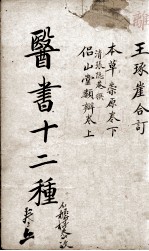 王琢崖合訂
本草崇原卷下
清張隱菴撰
侶山堂類辯卷上
醫書十二種